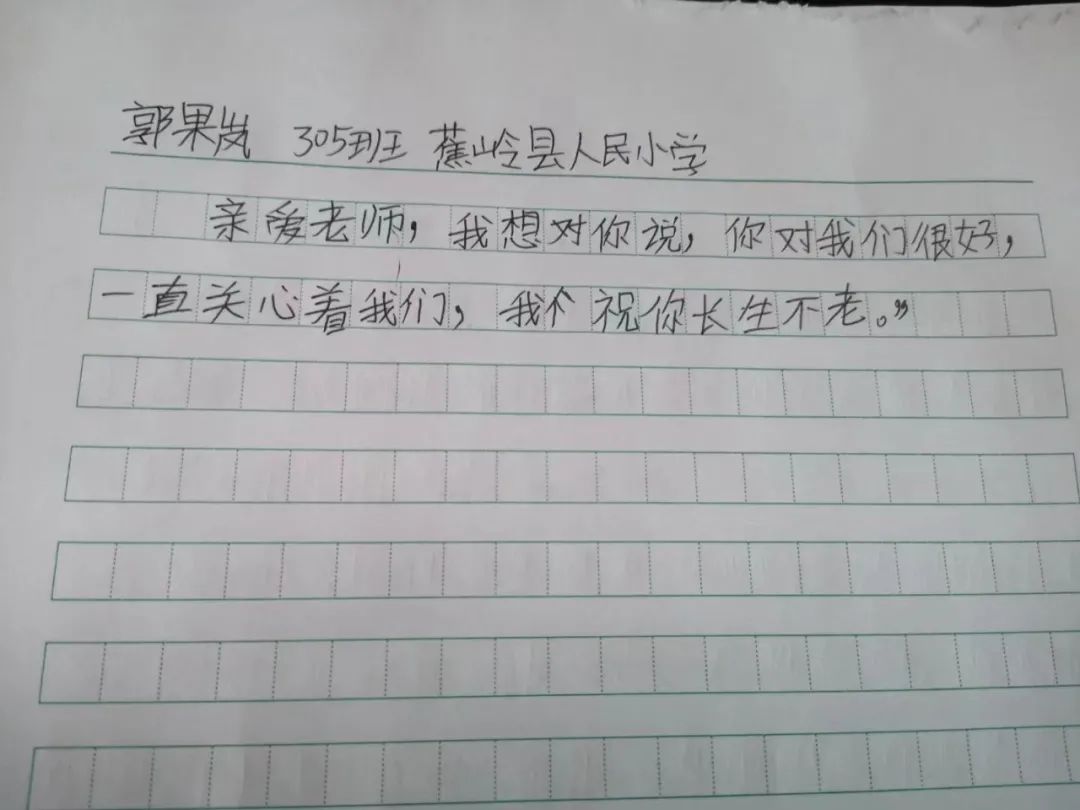 郭果岚 305班 蕉岭县人民小学
亲爱老师，我想对你说，你对我们很好，
一直关心着我们，我个祝你长生不老。”